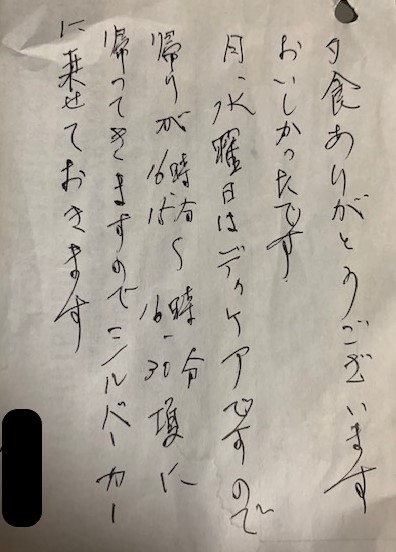 夕食ありがとうございます
おいしかったです
月、水曜日はディケアですので
帰りが16時15分〜16時30分頃に
帰ってきますのでシルバーカー
に乗せておきます